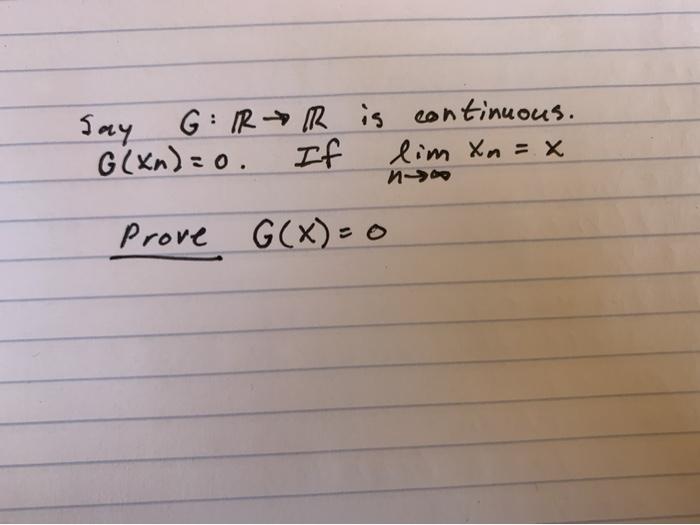 Say G: ℝ → ℝ is continuous.
G(xn) = 0. If lim xn = x
n→∞
Prove G(x) = 0